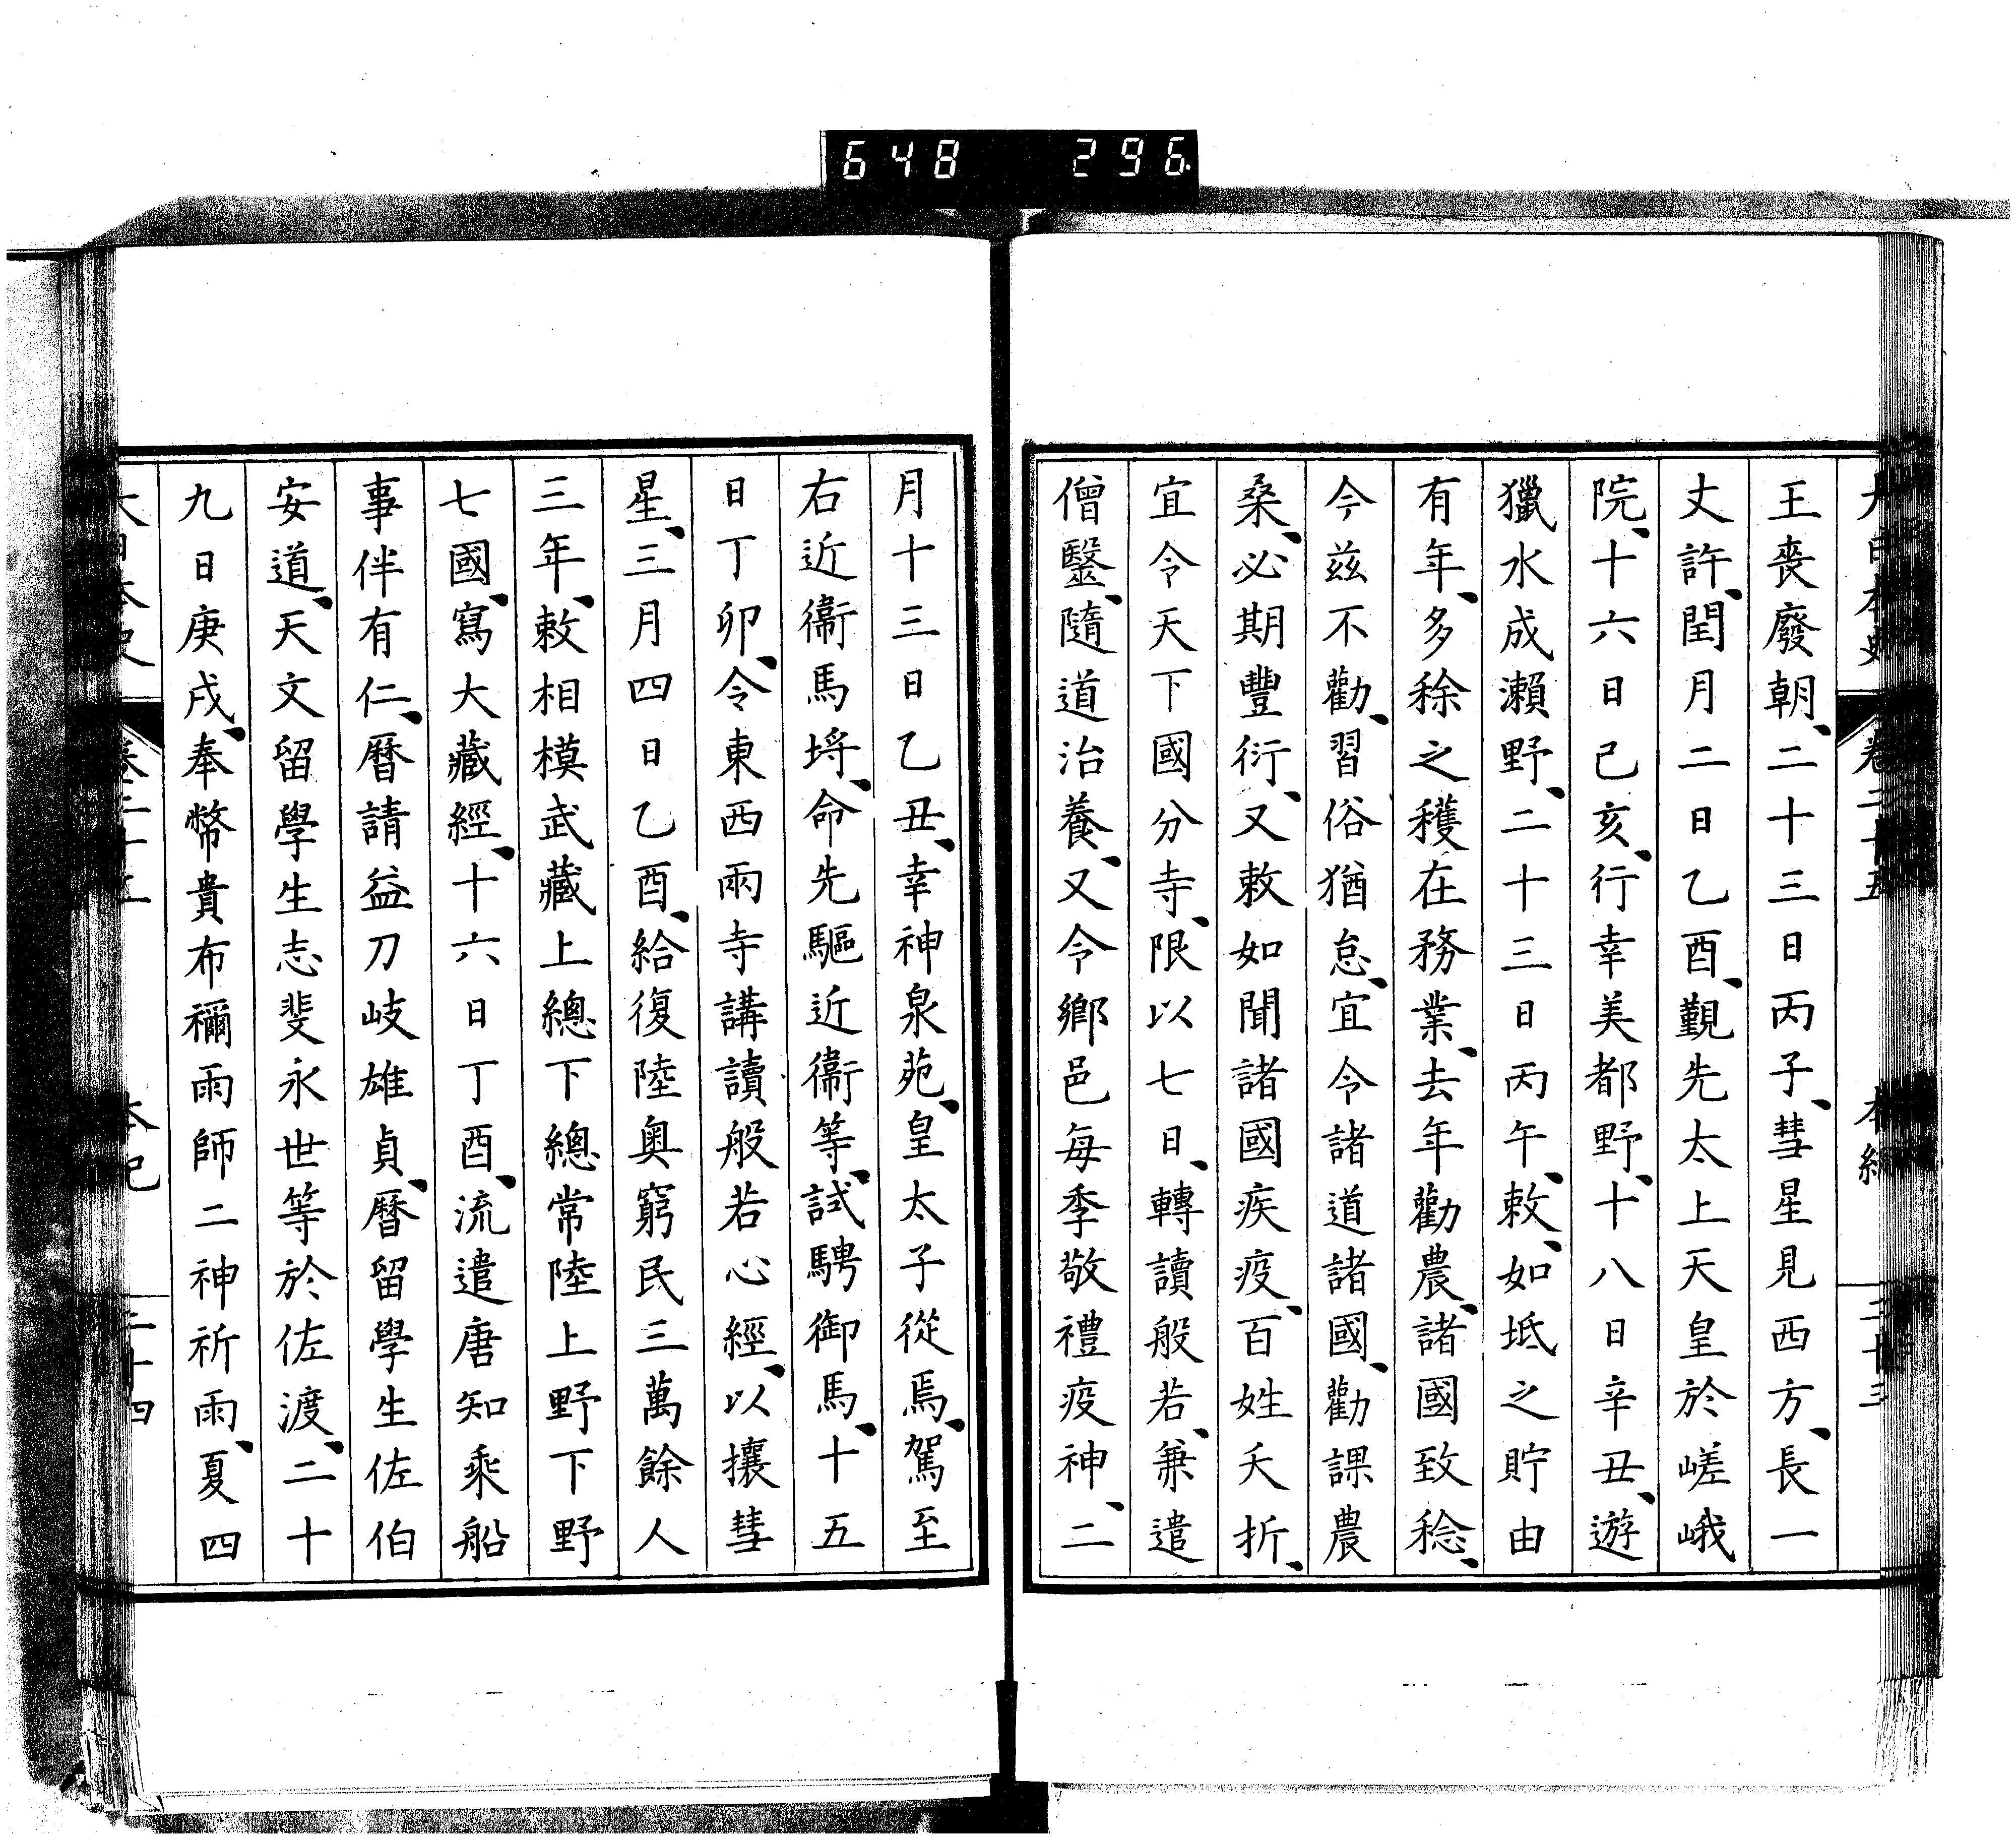 648 296
大日本史 卷二十五 本紀 三十三
王喪廢朝、二十三日丙子、彗星見西方、長一
丈許、閏月二日乙酉、覲先太上天皇於嵯峨
院、十六日己亥、行幸美都野、十八日辛丑、遊
獵水成瀨野、二十三日丙午、敕、如坻之貯由
有年、多稌之穫在務業、去年勸農、諸國致稔、
今茲不勸、習俗猶怠、宜令諸道諸國、勸課農
桑、必期豐衍、又敕如聞諸國疾疫、百姓夭折、
宜令天下國分寺、限以七日、轉讀般若、兼遣
僧醫、隨道治養、又令鄉邑每季敬禮疫神、二
月十三日乙丑、幸神泉苑、皇太子從焉、駕至
右近衞馬埒、命先驅近衞等、試騁御馬、十五
日丁卯、令東西兩寺講讀般若心經、以攘彗
星、三月四日乙酉、給復陸奧窮民三萬餘人
三年、敕相模武藏上總下總常陸上野下野
七國、寫大藏經、十六日丁酉、流遣唐知乘船
事伴有仁、曆請益刀岐雄貞、曆留學生佐伯
安道、天文留學生志斐永世等於佐渡、二十
九日庚戌、奉幣貴布禰雨師二神祈雨、夏四
大日本史 卷二十五 本紀 三十四